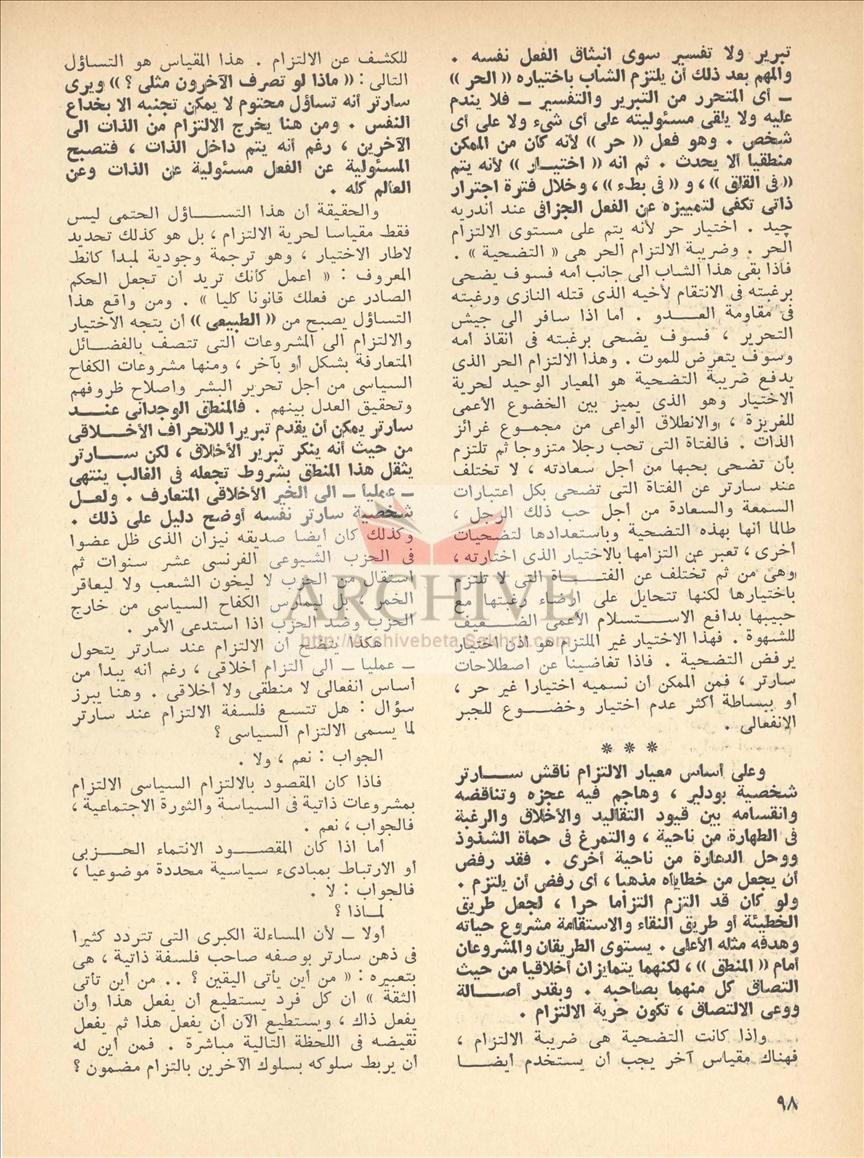 تبرير ولا تفسير سوى انبثاق الفعل نفسه .
والمهم بعد ذلك أن يلتزم الشاب باختياره « الحر »
ـ أى المتحرر من التبرير والتفسير ـ فلا يندم
عليه ولا يلقى مسئوليته على أى شىء ولا على أى
شخص . وهو فعل « حر » لأنه كان من الممكن
منطقيا ألا يحدث . ثم انه « اختيار » لأنه يتم
« فى القلق » ، و « فى بطء » ، وخلال فترة اجترار
ذاتى تكفى لتمييزه عن الفعل الجزافى عند أندريه
چيد . اختيار حر لأنه يتم على مستوى الالتزام
الحر . وضريبة الالتزام الحر هى « التضحية » .
فاذا بقى هذا الشاب الى جانب أمه فسوف يضحى
برغبته فى الانتقام لأخيه الذى قتله النازى ورغبته
فى مقاومة العدو . أما اذا سافر الى جيش
التحرير ، فسوف يضحى برغبته فى انقاذ أمه
وسوف يتعرض للموت . وهذا الالتزام الحر الذى
يدفع ضريبة التضحية هو المعيار الوحيد لحرية
الاختيار وهو الذى يميز بين الخضوع الأعمى
للغريزة ، والانطلاق الواعى من مجموع غرائز
الذات . فالفتاة التى تحب رجلا متزوجا ثم تلتزم
بأن تضحى بحبها من أجل سعادته ، لا تختلف
عند سارتر عن الفتاة التى تضحى بكل اعتبارات
السمعة والسعادة من أجل حب ذلك الرجل ،
طالما أنها بهذه التضحية وباستعدادها لتضحيات
أخرى ، تعبر عن التزامها بالاختيار الذى اختارته ،
وهى من ثم تختلف عن الفتاة التى لا تلتزم
باختيارها لكنها تتحايل على ارضاء رغبتها مع
حبيبها بدافع الاستسلام الأعمى الضعيف
للشهوة . فهذا الاختيار غير الملتزم هو اذن اختيار
يرفض التضحية . فاذا تغاضينا عن اصطلاحات
سارتر ، فمن الممكن أن نسميه اختيارا غير حر ،
أو ببساطة أكثر عدم اختيار وخضوع للجبر
الانفعالى .
* * *
وعلى أساس معيار الالتزام ناقش سارتر
شخصية بودلير ، وهاجم فيه عجزه وتناقضه
وانقسامه بين قيود التقاليد والأخلاق والرغبة
فى الطهارة من ناحية ، والتمرغ فى حمأة الشذوذ
ووحل الدعارة من ناحية أخرى . فقد رفض
أن يجعل من خطاياه مذهبا ، أى رفض أن يلتزم .
ولو كان قد التزم التزاما حرا ، لجعل طريق
الخطيئة أو طريق النقاء والاستقامة مشروع حياته
وهدفه مثله الأعلى . يستوى الطريقان والمشروعان
أمام « المنطق » ، لكنهما يتمايزان أخلاقيا من حيث
التصاق كل منهما بصاحبه . وبقدر أصالة
ووعى الالتصاق ، تكون حرية الالتزام .
واذا كانت التضحية هى ضريبة الالتزام ،
فهناك مقياس آخر يجب أن يستخدم أيضا
للكشف عن الالتزام . هذا المقياس هو التساؤل
التالى : « ماذا لو تصرف الآخرون مثلى ؟ » ويرى
سارتر أنه تساؤل محتوم لا يمكن تجنبه الا بخداع
النفس . ومن هنا يخرج الالتزام من الذات الى
الآخرين ، رغم أنه يتم داخل الذات ، فتصبح
المسئولية عن الفعل مسئولية عن الذات وعن
العالم كله .
والحقيقة أن هذا التساؤل الحتمى ليس
فقط مقياسا لحرية الالتزام ، بل هو كذلك تحديد
لاطار الاختيار ، وهو ترجمة وجودية لمبدأ كانط
المعروف : « اعمل كأنك تريد أن تجعل الحكم
الصادر عن فعلك قانونا كليا » . ومن واقع هذا
التساؤل يصبح من « الطبيعى » أن يتجه الاختيار
والالتزام الى المشروعات التى تتصف بالفضائل
المتعارفة بشكل أو بآخر ، ومنها مشروعات الكفاح
السياسى من أجل تحرير البشر واصلاح ظروفهم
وتحقيق العدل بينهم . فالمنطق الوجدانى عند
سارتر يمكن أن يقدم تبريرا للانحراف الأخلاقى
من حيث أنه ينكر تبرير الأخلاق ، لكن سارتر
يثقل هذا المنطق بشروط تجعله فى الغالب ينتهى
ـ عمليا ـ الى الخير الأخلاقى المتعارف . ولعل
شخصية سارتر نفسه أوضح دليل على ذلك .
وكذلك كان أيضا صديقه نيزان الذى ظل عضوا
فى الحزب الشيوعى الفرنسى عشر سنوات ثم
استقال من الحزب لا ليخون الشعب ولا ليعاقر
الخمر ، بل ليمارس الكفاح السياسى من خارج
الحزب وضد الحزب اذا استدعى الأمر .
هكذا يتضح أن الالتزام عند سارتر يتحول
ـ عمليا ـ الى التزام أخلاقى ، رغم أنه يبدأ من
أساس انفعالى لا منطقى ولا أخلاقى . وهنا يبرز
سؤال : هل تتسع فلسفة الالتزام عند سارتر
لما يسمى الالتزام السياسى ؟
الجواب : نعم ، ولا .
فاذا كان المقصود بالالتزام السياسى الالتزام
بمشروعات ذاتية فى السياسة والثورة الاجتماعية ،
فالجواب ، نعم .
أما اذا كان المقصود الانتماء الحزبى
أو الارتباط بمبادىء سياسية محددة موضوعيا ،
فالجواب : لا .
لماذا ؟
أولا ـ لأن المساءلة الكبرى التى تتردد كثيرا
فى ذهن سارتر بوصفه صاحب فلسفة ذاتية ، هى
بتعبيره : « من أين يأتى اليقين ؟ .. من أين تأتى
الثقة » ان كل فرد يستطيع أن يفعل هذا وأن
يفعل ذاك ، ويستطيع الآن أن يفعل هذا ثم يفعل
نقيضه فى اللحظة التالية مباشرة . فمن أين له
أن يربط سلوكه بسلوك الآخرين بالتزام مضمون ؟
٩٨
ARCHIVE
http://Archivebeta.Sakhrit.com